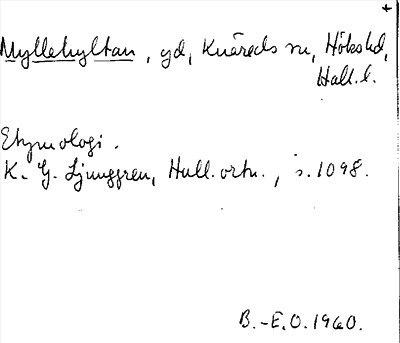 Myllehyltan, gd, Knäreds sn, Höks hd,
Hall. l.
Etymologi.
K. G. Ljunggren, Hall. ortn., s. 1098.
B.-E.O. 1960.